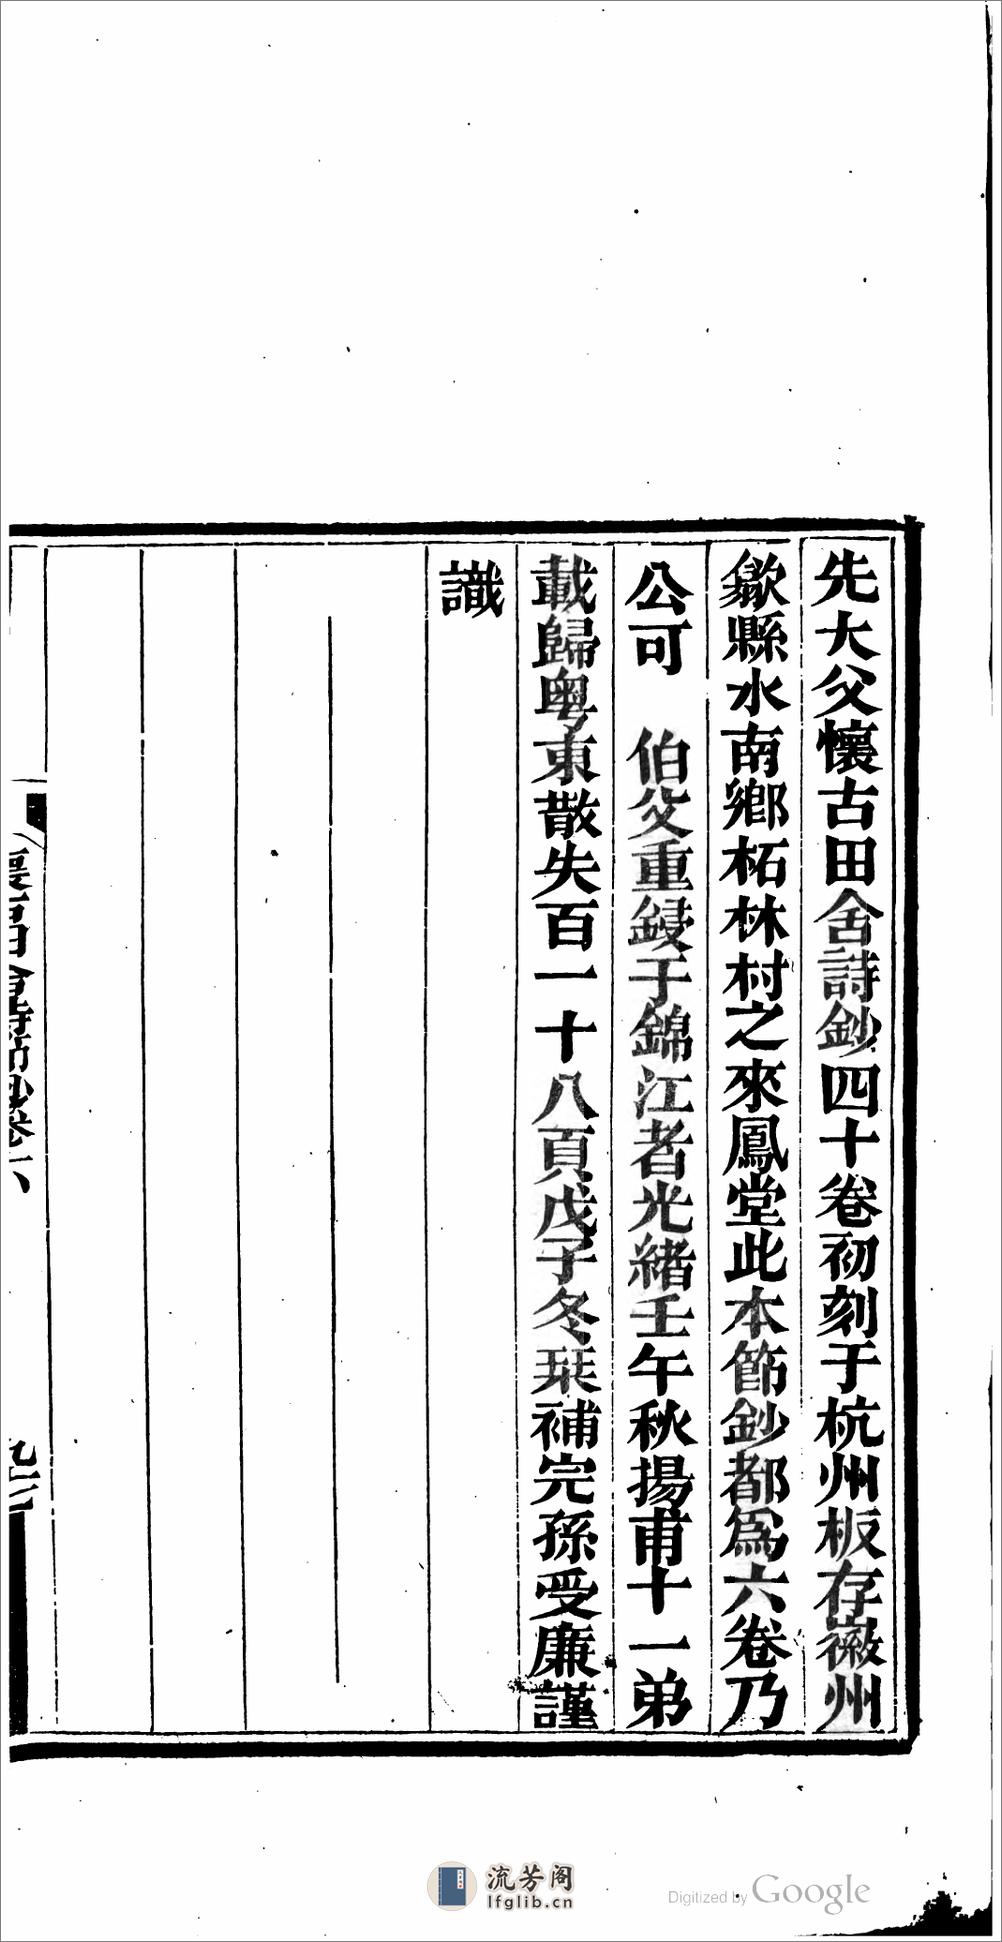 先大父懷古田舍詩鈔四十卷初刻于杭州板存徽州
歙縣水南鄉柘林村之來鳳堂此本節鈔都爲六卷乃
公可　伯父重鋟于錦江者光緒壬午秋揚甫十一弟
載歸粵東散失百一十八頁戊子冬栞補完孫受廉謹
識
懷古田舍詩節鈔卷六
流芳阁
lfglib.cn
Digitized by Google